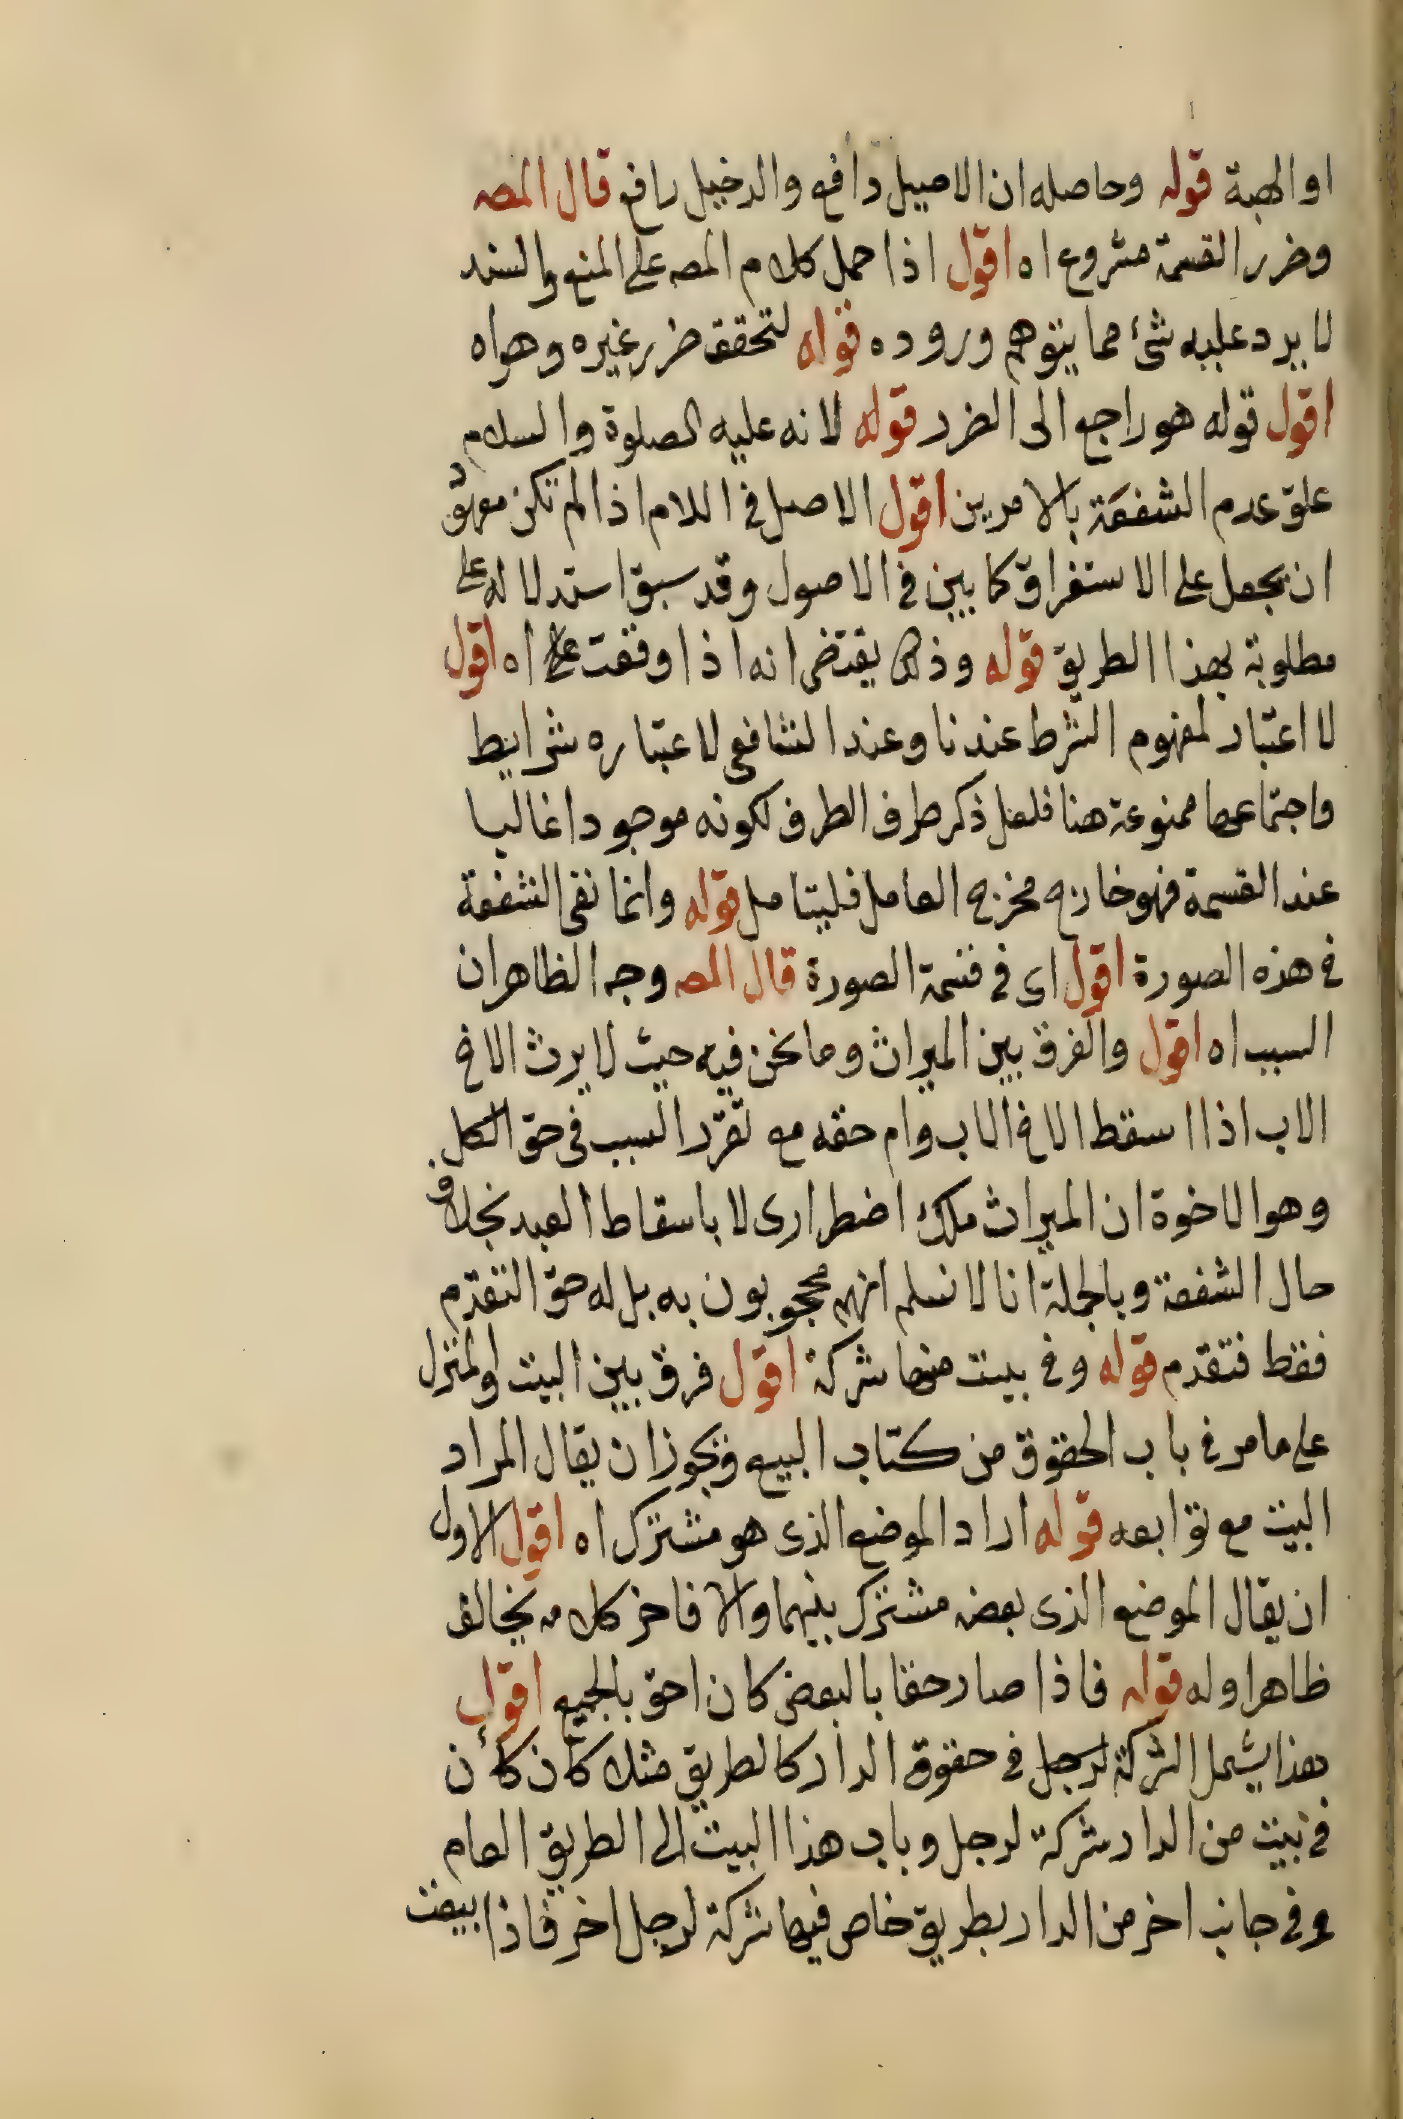 او الهبة قوله وحاصله ان الاصيل دافع والدخيل رافع قال المصه
وضرر القسمة مشروع اه اقول اذا حمل كلام المصه على المنع والسند
لا يرد عليه شئ مما يتوهم وروده قوله لتحقق ضرر غيره وهو اه
اقول قوله هو راجع الى الضرر قوله لانه عليه الصلوة والسلام
علق عدم الشفعة بالامرين اقول الاصل فى اللام اذا لم تكن معهود
ان يجعل على الاستغراق كما بين فى الاصول وقد سبق استدلاله على
مطلوبة بهذا الطريق قوله وذلك يقتضى انه اذا وقعت اه اقول
لا اعتبار لمفهوم الشرط عندنا وعند الشافعى لاعتباره شرايط
واجتماعها ممنوعة هنا فلعل ذكر صرف الطرف لكونه موجودا غالبا
عند القسمة فهو خارج مخرج العامل فليتامل قوله وانما نفى الشفعة
فى هذه الصورة اقول اى فى قسمة الصورة قال المصه وجه الظاهر ان
السبب اه اقول والفرق بين الميراث وما نحن فيه حيث لا يرث الاخ
الاب اذا اسقط الاخ الاب وام حقه مع تقرر السبب فى حق الكل
وهو الاخوة ان الميراث ملك اضطرارى لا باسقاط العبد بخلاف
حال الشفعة وبالجملة انا لا نسلم انهم محجوبون به بل له حق التقدم
فقط فتقدم قوله وفى بيت منها شركة اقول فرق بين البيت والمنزل
على ما مر فى باب الحقوق من كتاب البيع فيجوز ان يقال المراد
البيت مع توابعه قوله اراد الموضع الذى هو مشترك اه اقول الاول
ان يقال الموضع الذى بعضه مشترك بينهما والا فاخر كلامه يخالف
ظاهر اوله قوله فاذا صار حقا بالبعض كان احق بالجميع اقول
هذا يشمل الشركة لرجل فى حقوق الدار كالطريق مثلا كان كان
فى بيت من الدار شركة لرجل وباب هذا البيت الى الطريق العام
وفى جانب اخر من الدار بطريق خاص فيها شركة لرجل اخر فاذا بيعت